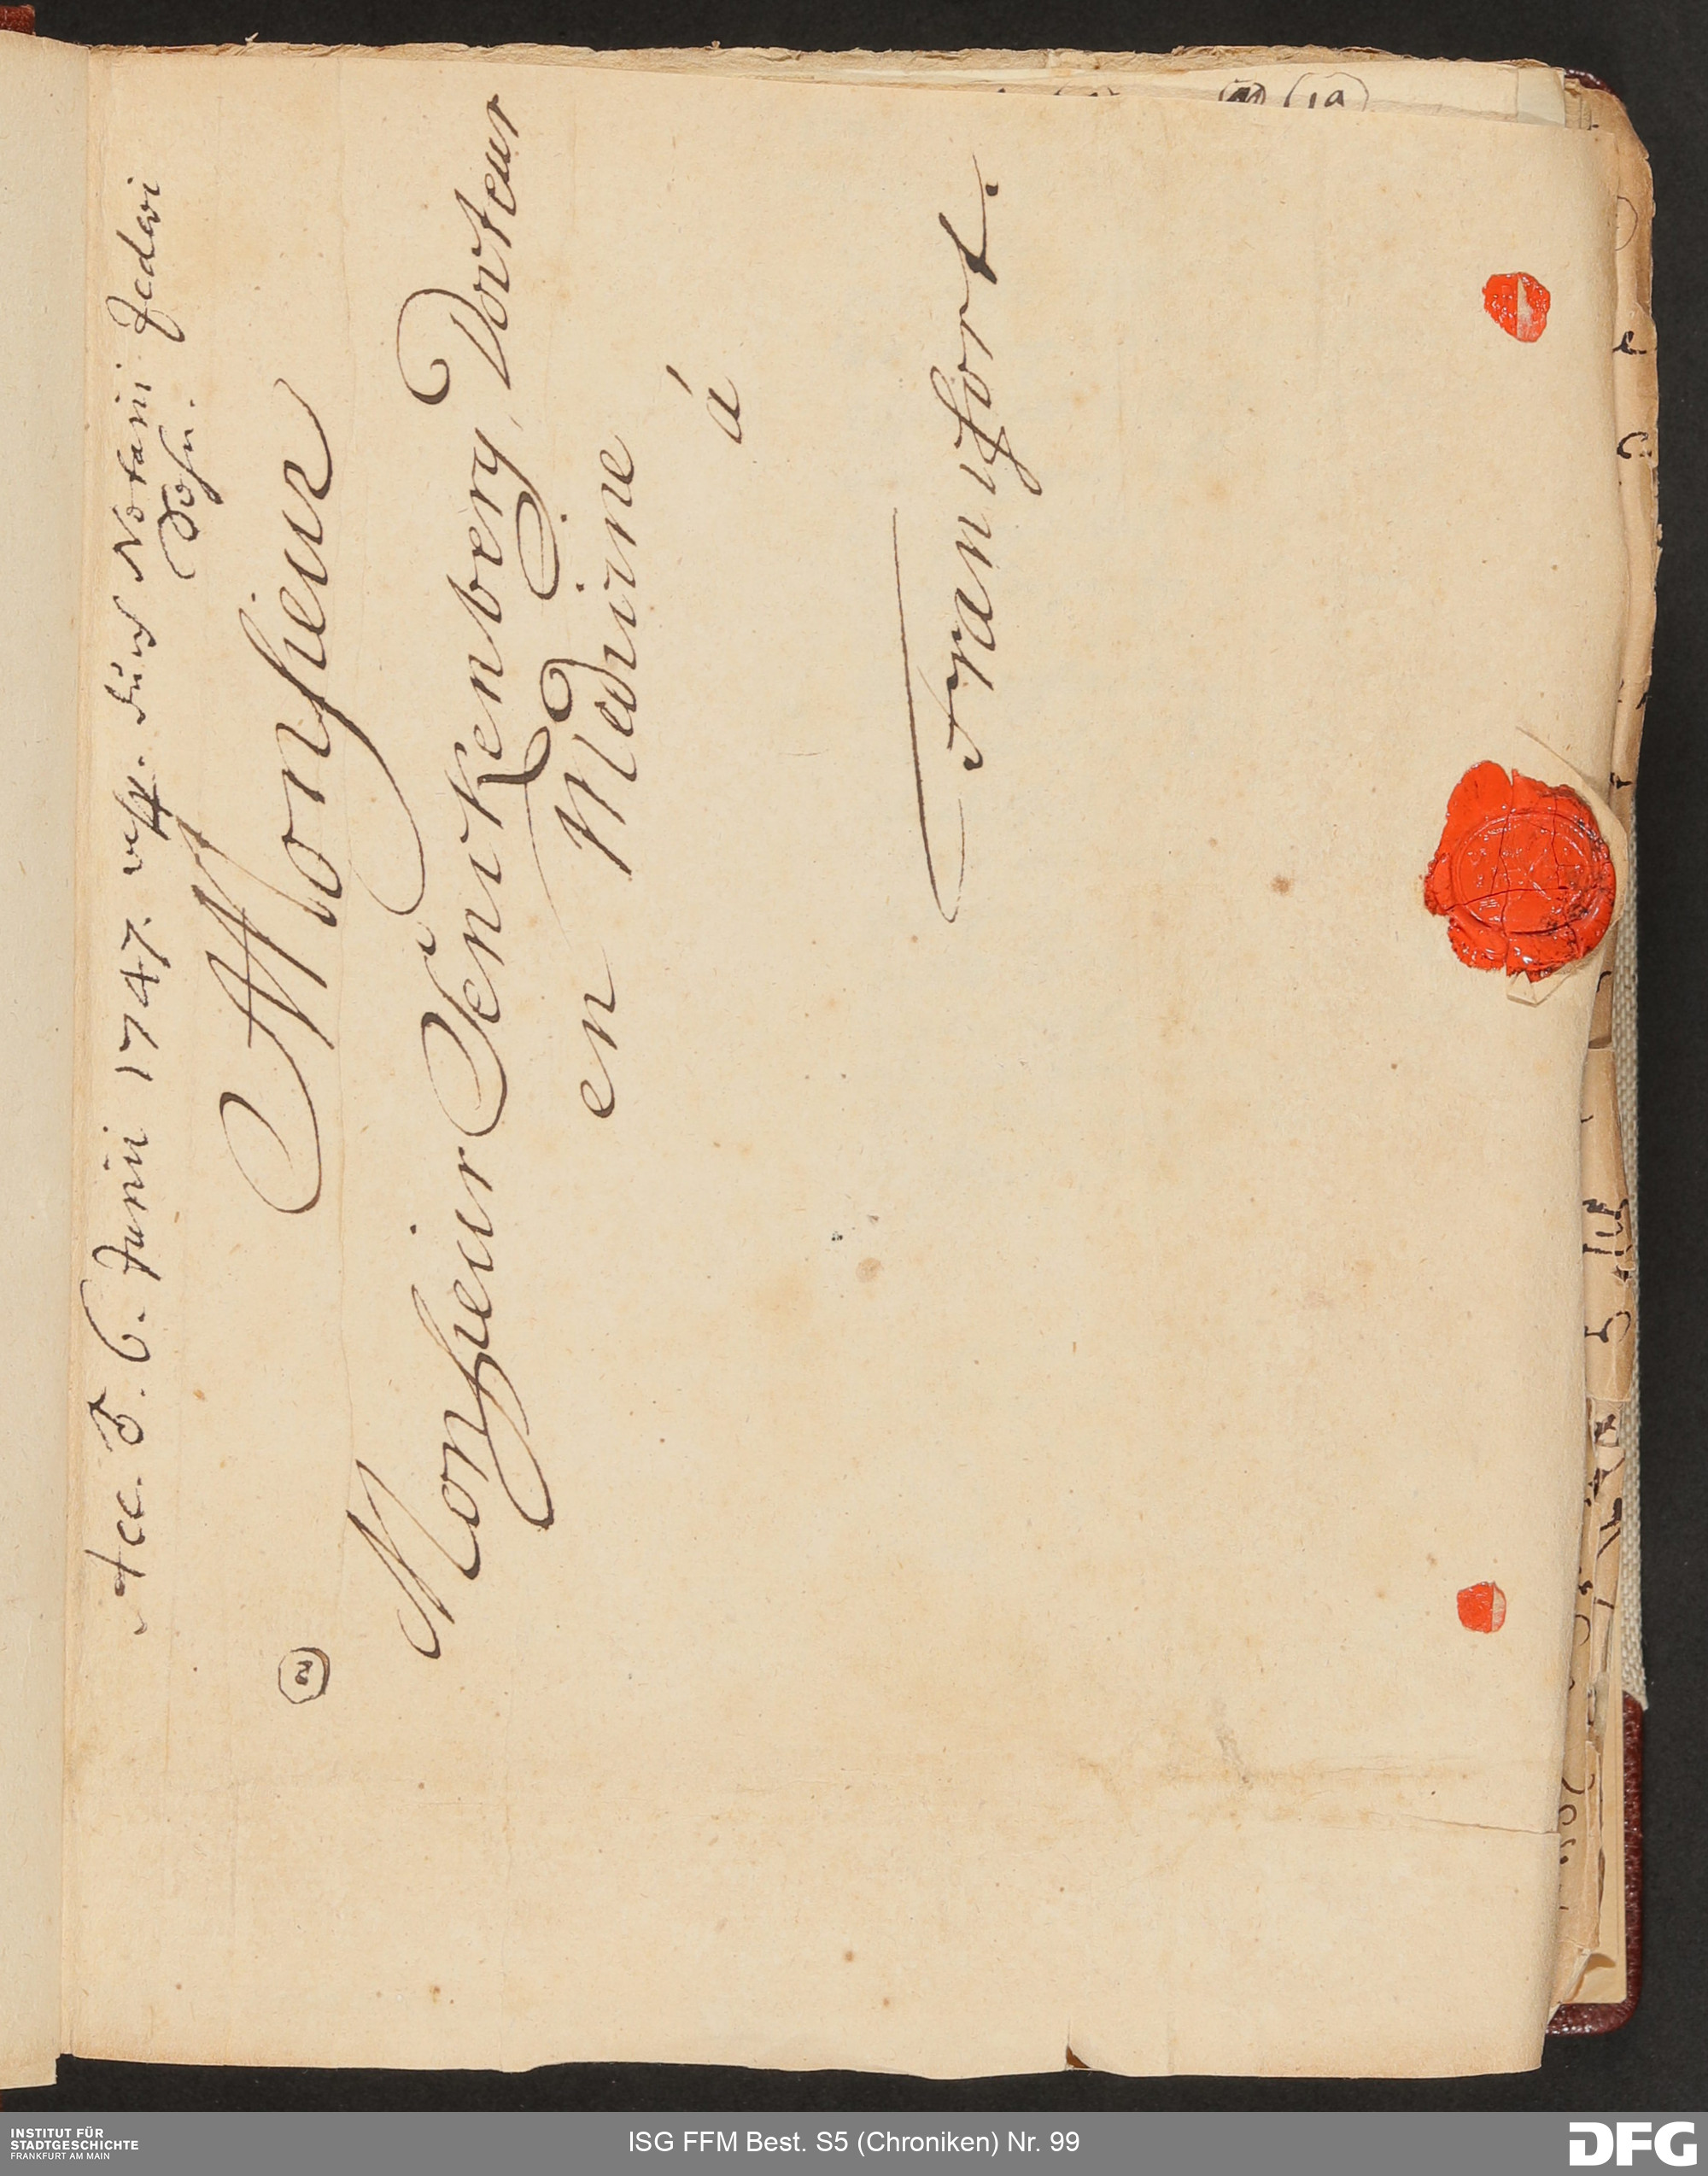 Acc. d. 6. Junii 1747. vesp. durch Notarii Jedavi
Sohn.
Monsieur
Monsieur Senckenberg, Docteur
en Medicine
á
Francfort.
2
(19)
INSTITUT FÜR
STADTGESCHICHTE
FRANKFURT AM MAIN
ISG FFM Best. S5 (Chroniken) Nr. 99
DFG